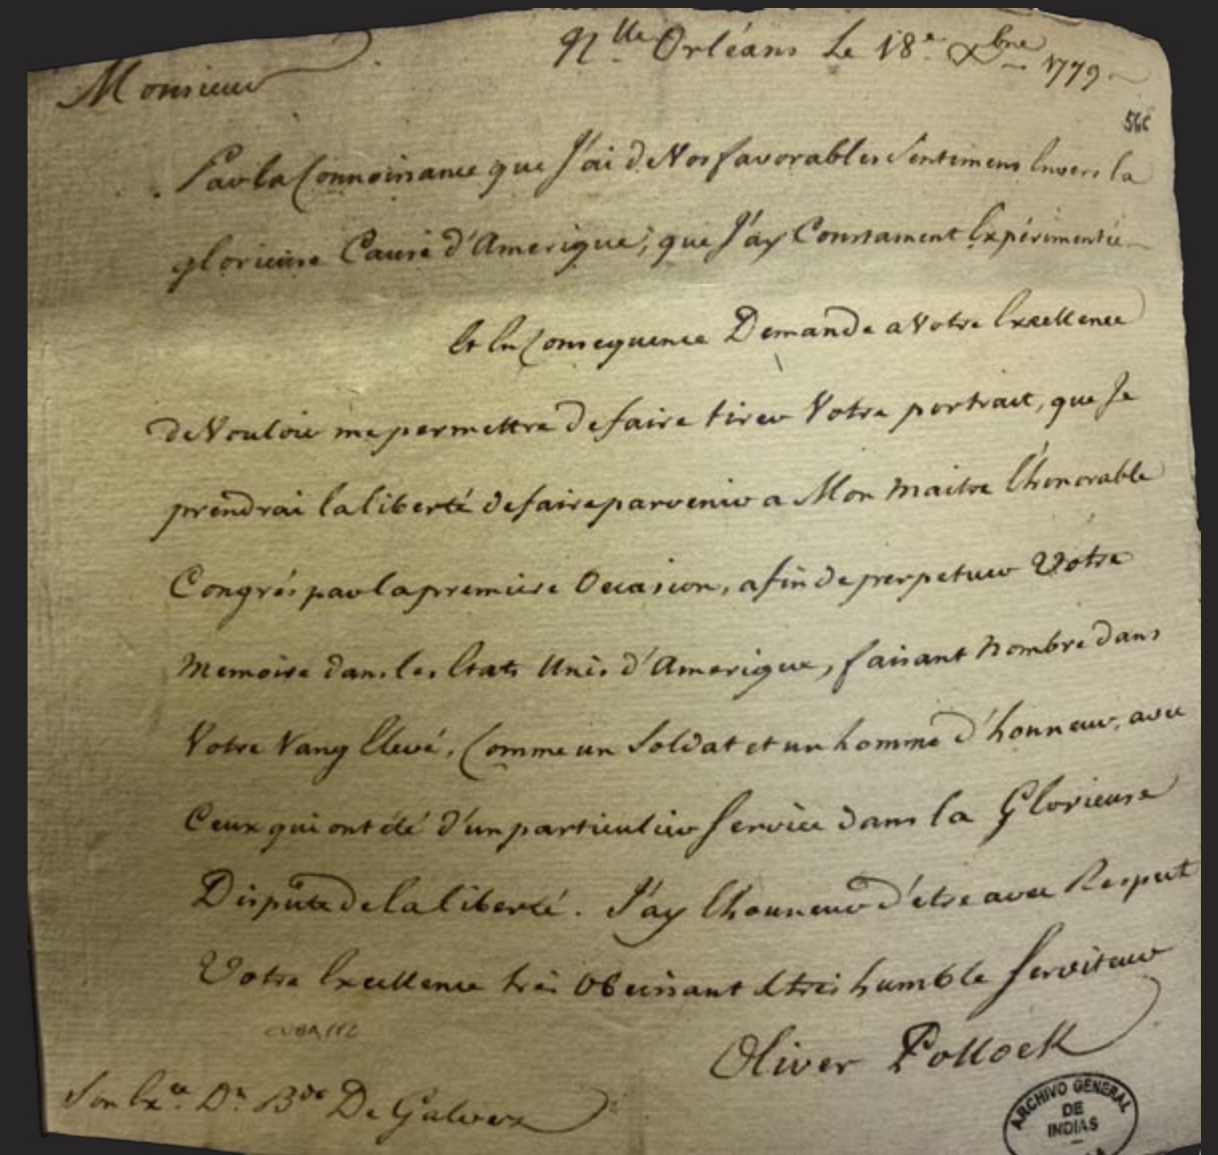 Nlle Orléans Le 18e Xbre 1779
Monsieur
566
Par la Connoissance que J'ai de Vos favorables Sentimens Envers la
glorieuse Cause d'Amerique, que J'ay Constament Expérimentée
Et En Consequence Demande a Votre Excellence
de Vouloir me permettre de faire tirer Votre portrait, que Je
prendrai la liberté de faire parvenir a Mon Maitre l'honorable
Congrés par la premiere Occasion, afin de perpetuer Votre
Memoire dans les Etats Unis d'Amerique, faisant Nombre dans
Votre Rang Elevé, Comme un Soldat et un homme d'honneur, avec
Ceux qui ont été d'un particulier Service dans la Glorieuse
Dispute de la liberté. J'ay l'honneur d'être avec Respect
Votre Excellence trés Obeissant & trés humble Serviteur
CUBA 112
Oliver Pollock
Son Exce. Dn Bdo De Galvez
ARCHIVO GENERAL
DE
INDIAS